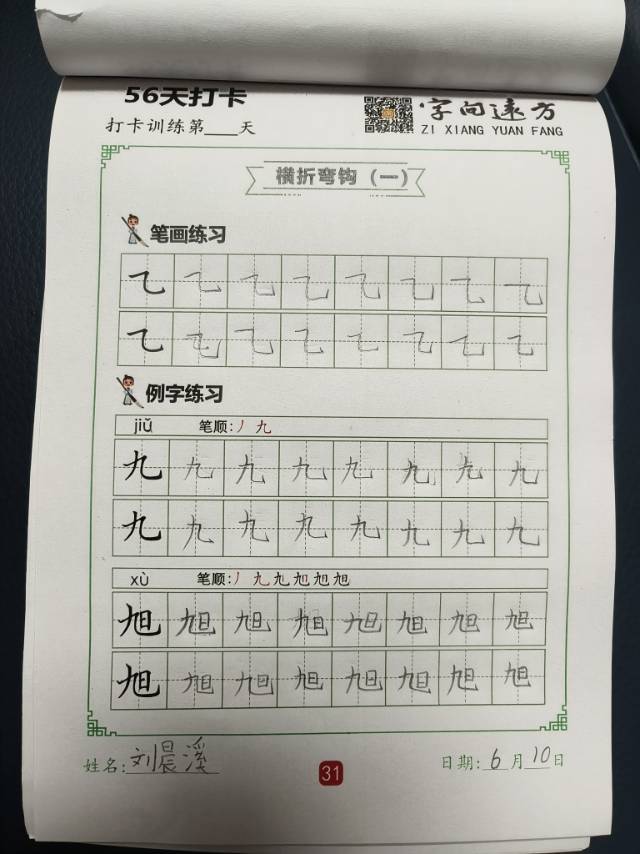 56天打卡
打卡训练第___天
字向远方
ZI XIANG YUAN FANG
横折弯钩（一）
笔画练习
乁 乁 乁 乁 乁 乁 乁 乁
乁 乁 乁 乁 乁 乁 乁 乁
例字练习
jiǔ 笔顺:丿九
九 九 九 九 九 九 九 九
九 九 九 九 九 九 九 九
xù 笔顺:丿九九旭旭旭
旭 旭 旭 旭 旭 旭 旭 旭
旭 旭 旭 旭 旭 旭 旭 旭
姓名:刘晨溪
31
日期:6月10日